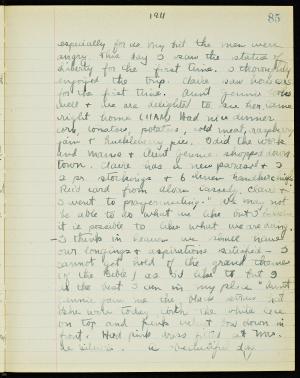 1911
85
especially for us. My but the men were
angry. This day I saw the statue of
liberty for the first time. I thoroughly
enjoyed the trip. Claire saw
for the first time. Aunt Jennie looks
well & we are delighted to see her, came
right home (11 A.M.) Had nice dinner
corn, tomatoes, potatoes, cold meat, raspberry
jam & huckleberry pie. I did the work
and Mama & Aunt Jennie shopped down
town. Claire has a new parasol &
2 pr. stockings & 6 linen handkerchiefs
Rec'd card from Claire &
I went to prayermeeting. We may not
be able to do what we like but I
it is possible to like what we are doing.
I think in heaven we shall have
our longings & aspirations satisfied - I
cannot get hold of the grand themes
of the Bible as I'd like to but I
do the best I can in my place. Aunt
Jennie gave me the black
she wore today with the white lace
on top and pink & bow down in
front. Had pink
a beautiful day